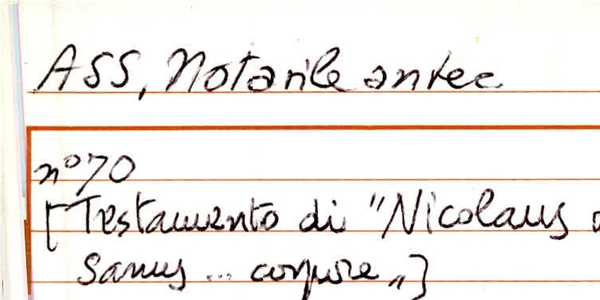 ASS, Notarile antec.
n° 70
[Testamento di "Nicolaus
sanus ... corpore"]